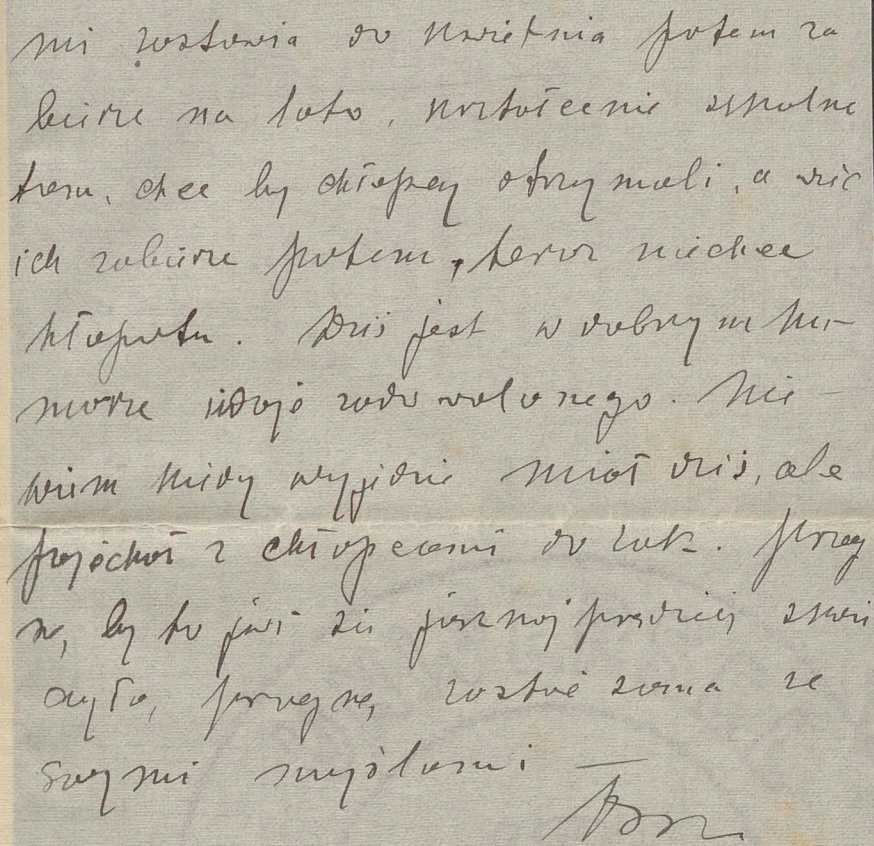 mi zostawia do kwietnia potem za
bierze na lato, kształcenie szkolne
chce by chłopcy otrzymali, a więc
ich zabierze potem, teraz niechce
kłopotu. Dziś jest w dobrym hu-
morze udaje zadowolonego. Nie-
wiem kiedy wyjedzie miał dziś, ale
pojechał z chłopcami do Zak. pragn
ę, by to już się jaknajprędzej skoń
czyło, pragnę, zostać sama ze
swymi myślami